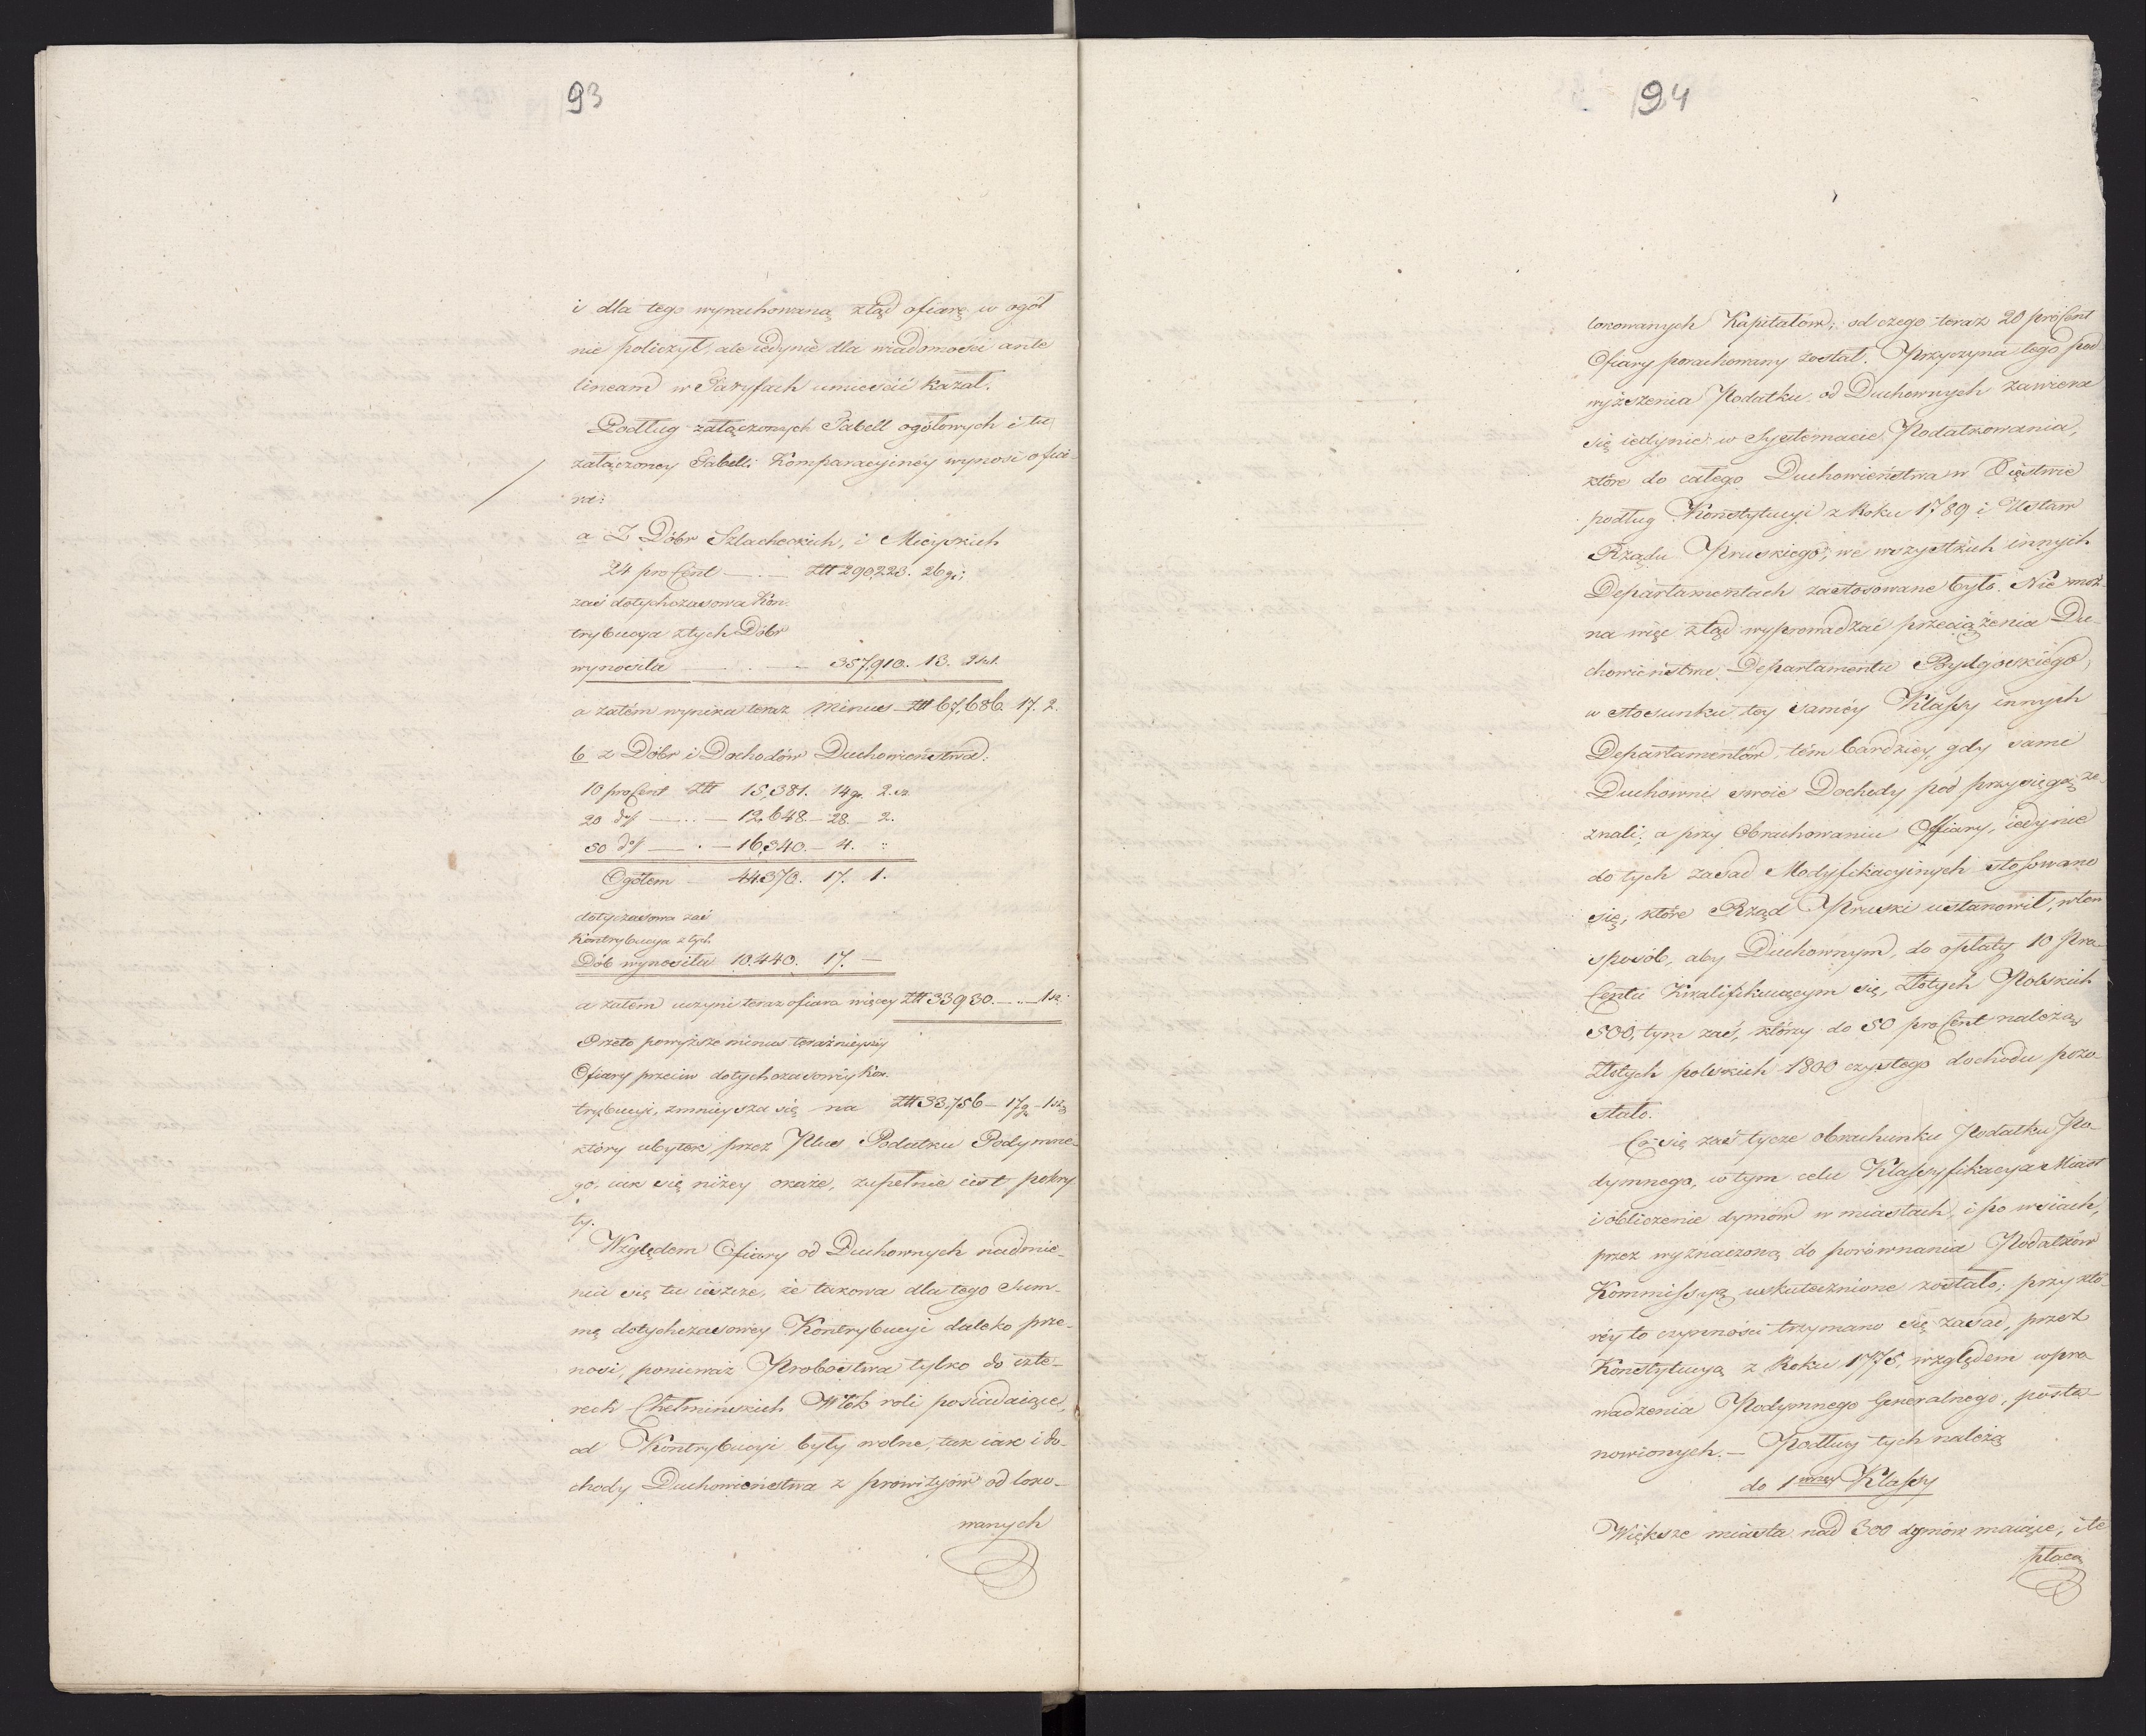 93
i dla tego wyrachowaną ztąd ofiarę w ogół
nie policzył, ale iedynie dla wiadomości ante
lineam w Taryfach umieścić kazał.
Podług załączonych Tabell ogółowych i tu
załączoney Tabelli Komparacyinéy wynosi ofia-
ra:
a Z Dóbr Szlacheckich, i Mieyskich
24 pro Cent — . — Złt 290,223. 26 gr;
zaś dotychczasowa Kon-
trybucya z tych Dóbr
wynosiła — . . — 357,910. 13. 2 szl.
a zatém wynika teraz minus Złt 67,686. 17. 2.
b z Dóbr i Dochodów Duchowieństwa:
10 pro Cent Złt 15,381. 14 gr. 2. sz
20 do — . . — 12,648. — 28. — 2.
50 do — . — 16,340. — 4. "
Ogółem — 44370. 17. 1.
dotyczasowa zaś
Kontrybucya z tych
Dób wynosiła 10.440. 17. —
a zatem uczyni teraz ofiara więcey Złt 33930. — . — 1 sz.
Przeto powyższe minus teraźnieyszéy
Ofiary przeciw dotychczasowéy Kon-
trybucyi, zmnieysza się na Złt 33,756 — 17 g — 1 sz
który ubytek przez Plus Podatku Podymne-
go, iak się niżey okaże, zupełnie iest pokry-
ty.
Względem Ofiary od Duchownych nadmie-
nia się tu ieszcze, że takowa dla tego Sum-
mę dotychczasowey Kontrybucyi daleko prze-
nosi, ponieważ Probostwa tylko do czte-
rech Chełmińskich Włók roli posiadaiące,
od Kontrybucyi były wolne, tak iak i do-
chody Duchowieństwa z prowizyów od loko-
wanych
94
lokowanych Kapitałów, od czego teraz 20 pro Cent
Ofiary porachowany został. Przyczyna tego pod-
wyższenia Podatku od Duchownych zawiera
się iedynie w Systemacie Podatkowania,
które do całego Duchowieństwa w Xięstwie
podług Konstytucyi z Roku 1789 i Ustaw
Rządu Pruskiego, we wszystkich innych
Departamentach zastosowane było. Nie moż-
na więc ztąd wyprowadzać przeciążenia Du-
chowieństwa Departamentu Bydgoskiego,
w stosunku tey saméy Klassy innych
Departamentów, tém bardziey, gdy sami
Duchowni swoie Dochody pod przysięgą ze-
znali; a przy Obrachowaniu Offiary, iedynie
do tych zasad Modyfikacyinych stosowano
się, które Rząd Pruski ustanowił, w ten
sposób, aby Duchownym, do opłaty 10 Pro-
Centu Kwalifikuiącym się, Złotych Polskich
500, tym zaś, którzy do 50 pro Cent należą
Złotych polskich 1800 czystego dochodu pozo-
stało.
Co się zaś tycze obrachunku Podatku Po-
dymnego, w tym celu Klassyfikacya Miast
i obliczenie dymów w miastach, i po wsiach,
przez wyznaczoną do porównania Podatków
Kommissyą uskutecznione zostało; przy któ-
réy to czynności trzymano się zasad, przez
Konstytucyą z Roku 1775, względem wpro-
wadzenia Podymnego Generalnego, posta-
nowionych. — Podług tych należą
do 1wszey Klassy
Większe miasta nad 300 dymów maiące, i te
płacą